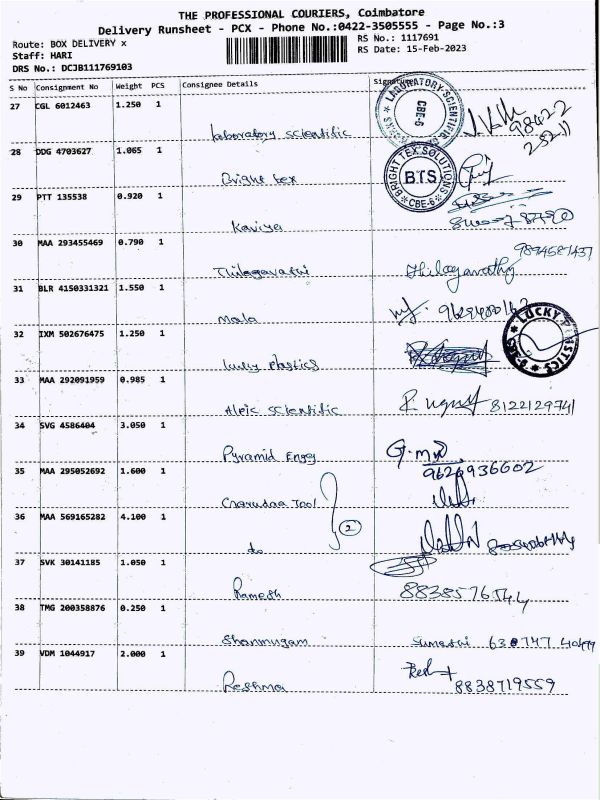 THE PROFESSIONAL COURIERS, Coimbatore
Delivery Runsheet - PCX - Phone No.:0422-3505555 - Page No.:3
Route: BOX DELIVERY x
RS No.: 1117691
Staff: HARI
RS Date: 15-Feb-2023
DRS No.: DCJB111769103
S No Consignment No Weight PCS Consignee Details Signature
27 CGL 6012463 1.250 1
Laboratory Scientific
LABORATORY SCIENTIFIC
CBE-6
98422
25211
28 DDG 4703627 1.065 1
Bright tex
BRIGHT TEX SOLUTIONS
BTS
CBE-6
29 PTT 135538 0.920 1
Kaviya
30 MAA 293455469 0.790 1
Thilagavathi Thilagavathy
31 BLR 4150331321 1.550 1
Mala
32 IXM 502676475 1.250 1
lucky plastics
LUCKY PLASTICS
33 MAA 292091959 0.985 1
Scientific 8122129741
34 SVG 4586404 3.050 1
Pyramid Engg
9626936602
35 MAA 295052692 1.600 1
Tool
2
36 MAA 569165282 4.100 1
do
37 SVK 30141185 1.050 1
Ramesh
38 TMG 200358876 0.250 1
Shanmugam
39 VDM 1044917 2.000 1
Reshma 8838719559